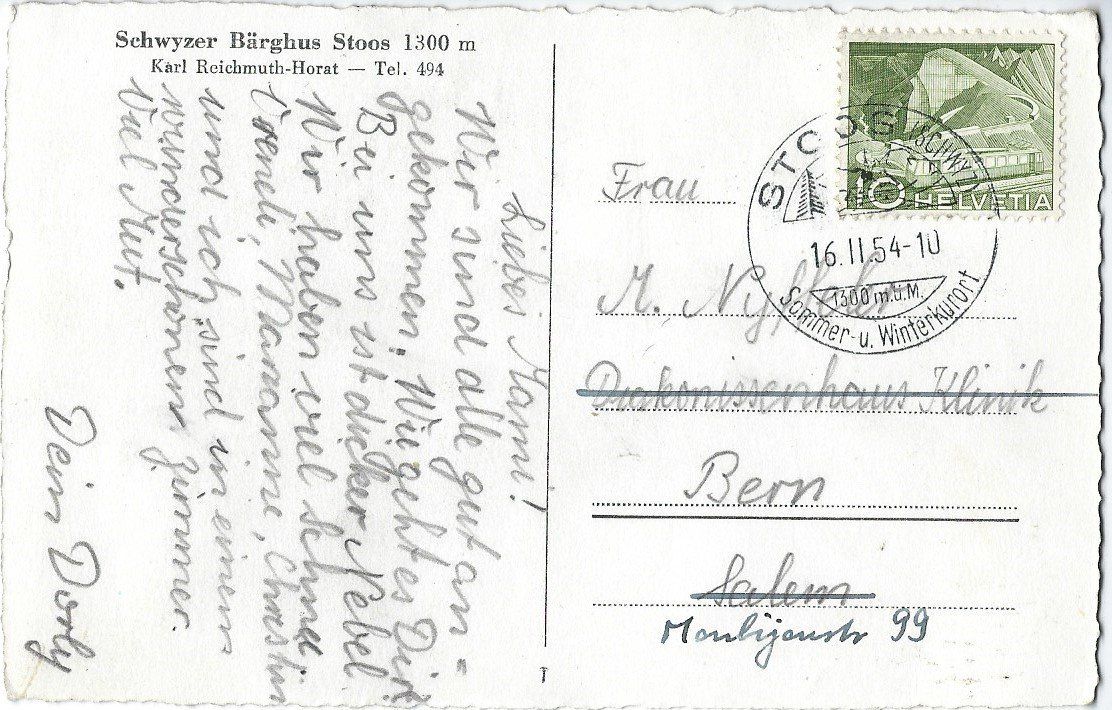 Schwyzer Bärghus Stoos 1300 m
Karl Reichmuth-Horat — Tel. 494
Liebes Mami!
Wir sind alle gut an=
gekommen. Wie geht es Dir
Bei uns ist dicker Nebel
Wir haben viel Schnee
Vreneli, Marianne, Christin
und ich sind in einem
wunderschönen Zimmer.
Viel Mut.
Dein Dorly
STOOS (SCHWYZ)
16.II.54-10
1300 m.ü.M.
Sommer-u. Winterkurort
10 HELVETIA
Frau
M. Nyffeler
Diakonissenhaus Klinik
Bern
Salem
Monbijoustr 99